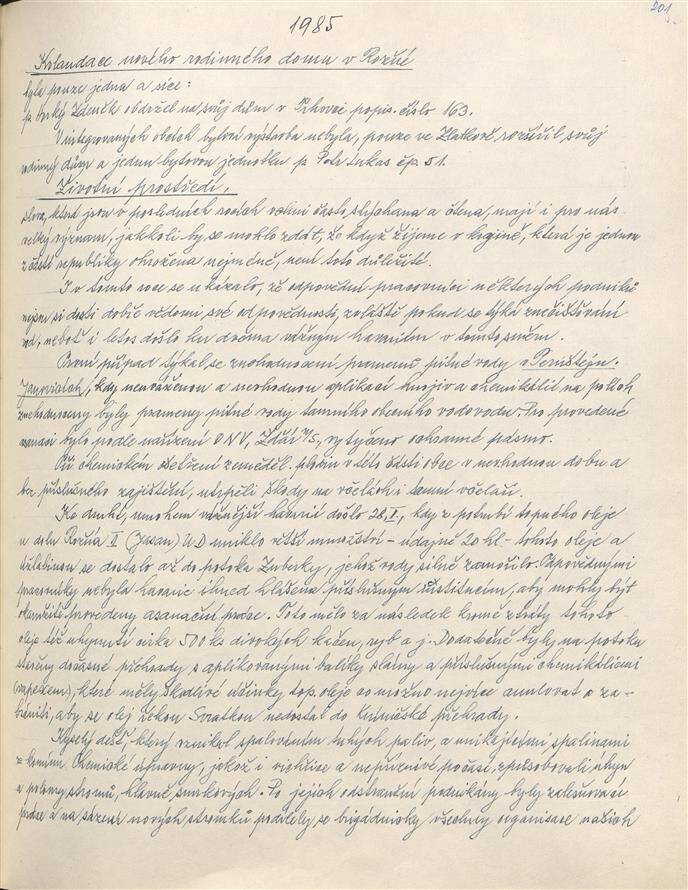 201
1985
Kolaudace nového rodinného domu v Rožné
byla pouze jedna a sice:
p. Zdeněk obdržel na svůj dům v popis. číslo 163.
V integrovaných obcích bytová výstavba nebyla, pouze ve Zlatkově rozšířil svůj
rodinný dům o jednu bytovou jednotku p. Petr Lukas čp 51.
Životní prostředí.
slova, která jsou v posledních rocích velmi často slýchána a čtena, mají i pro nás
velký význam, jakkoli by se mohlo zdát, že když žijeme v krajině, která je jednou
z částí republiky ohrožena nejméně, není toto důležité.
I v tomto roce se ukázalo, že odpovědní pracovníci některých podniků
nejsou si dosti dobře vědomi své odpovědnosti, zvláště pokud se týká znečišťování
vod, neboť i letos došlo ku dvěma vážným haváriím v tomto směru.
První případ týkal se znehodnocení pramenů pitné vody v Pernštejn.
Janovičkách, kdy neuváženou a nevhodnou aplikací hnojiv a chemikálií na polích
znehodnoceny byly prameny pitné vody tamního obecního vodovodu. Po provedené
asanaci bylo podle nařízení ONV, Žďár n/S, vytyčeno ochranné pásmo.
Při chemickém ošetření zeměděl. plodin v této části obce v nevhodnou dobu a
bez příslušného zajištění, utrpěli škody na včelách i tamní včelaři.
Ke druhé, mnohem vážnější havárii došlo 28.I., kdy z potrubí topného oleje
u dolu Rožná II (Jasan) UD uniklo větší množství - údajně 20 hl - tohoto oleje a
se dostalo až do potoka Zuberky, jehož vody silně zamořilo. Odpovědnými
pracovníky nebyla havarie ihned hlášena příslušným institucím, aby mohly být
okamžitě provedeny asanační práce. Toto mělo za následek kromě ztráty tohoto
oleje též uhynutí cirka 500 ks divokých kačen, ryb a j. Dodatečně byly na potoku
stavěny dočasné přehrady s aplikovanými balíky slámy a příslušnými chemikáliemi
(vapexem), které měly škodlivé účinky top. oleje co možno nejvíce anulovat a za-
brániti, aby se olej řekou Svratkou nedostal do Kníničské přehrady.
Kyselý déšť, který vznikal spalováním tuhých paliv, a unikajícími spalinami
z komínů Chemické úpravny, jakož i vichřice a nepříznivé počasí, způsobovali úhyn
a polomy stromů, hlavně smrkových. Po jejich odstranění podnikány byly zalesňovací
práce a na sázení nových stromků podílely se brigádnicky všechny organisace našich